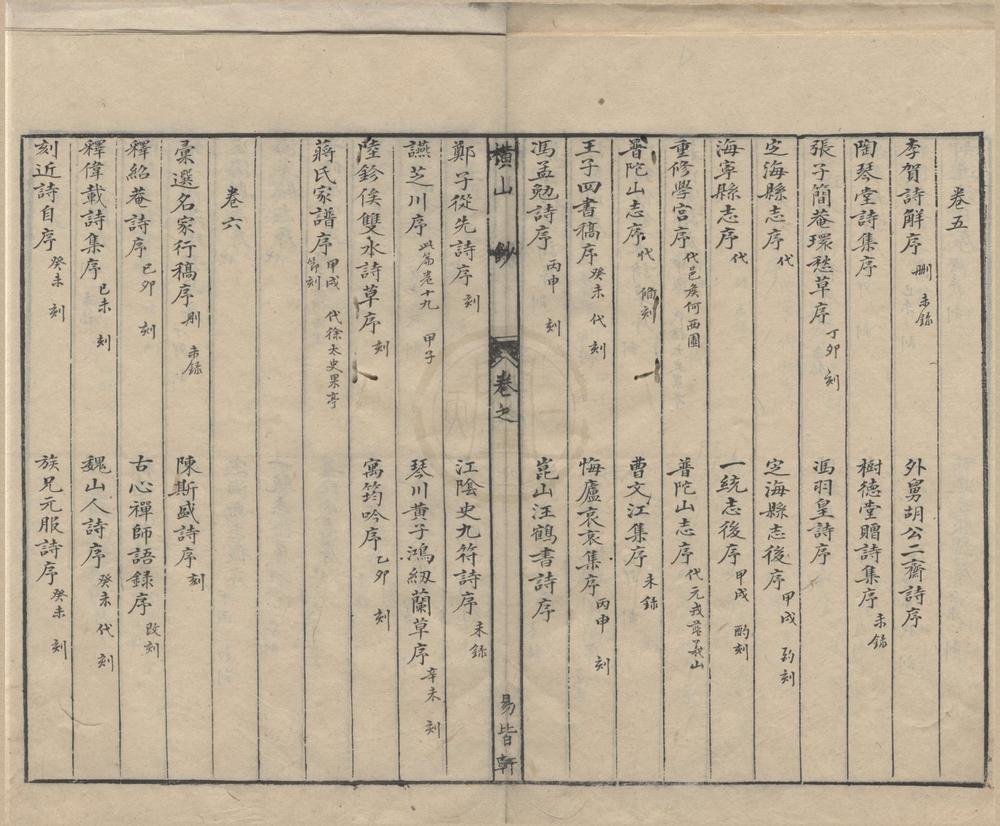 卷五
李賀詩解序 刪 未錄 外舅胡公二齋詩序
陶琴堂詩集序 樹德堂贈詩集序 未錄
張子簡菴環愁草序 丁卯 刻 馮羽皇詩序
定海縣志序 代 定海縣志後序 甲戌 刻
海寧縣志序 代 一統志後序 甲戌 酌刻
重修學宮序 代邑矦何西園 普陀山志序 代元戎藍義山
普陀山志序 代 刻 曹文江集序 未錄
王子四書稿序 癸未 代 刻 悔廬哀哀集序 丙申 刻
馮孟勉詩序 丙申 刻 崑山汪鶴書詩序
橫山 鈔 卷之 易皆軒
鄭子從先詩序 刻 江陰史九符詩序 未錄
讌芝川序 此篇卷十九 甲子 琴川黃子鴻紉蘭草序 辛未 刻
陸鉁俟雙水詩草序 刻 寓筠吟序 乙卯 刻
蔣氏家譜序 甲戌 代徐太史果亭 節刻
卷六
彙選名家行稿序 刪 未錄 陳斯盛詩序 刻
釋紹菴詩序 已卯 刻 古心禪師語錄序 改刻
釋偉載詩集序 已未 刻 魏山人詩序 癸未 代 刻
刻近詩自序 癸未 刻 族兄元服詩序 癸未 刻